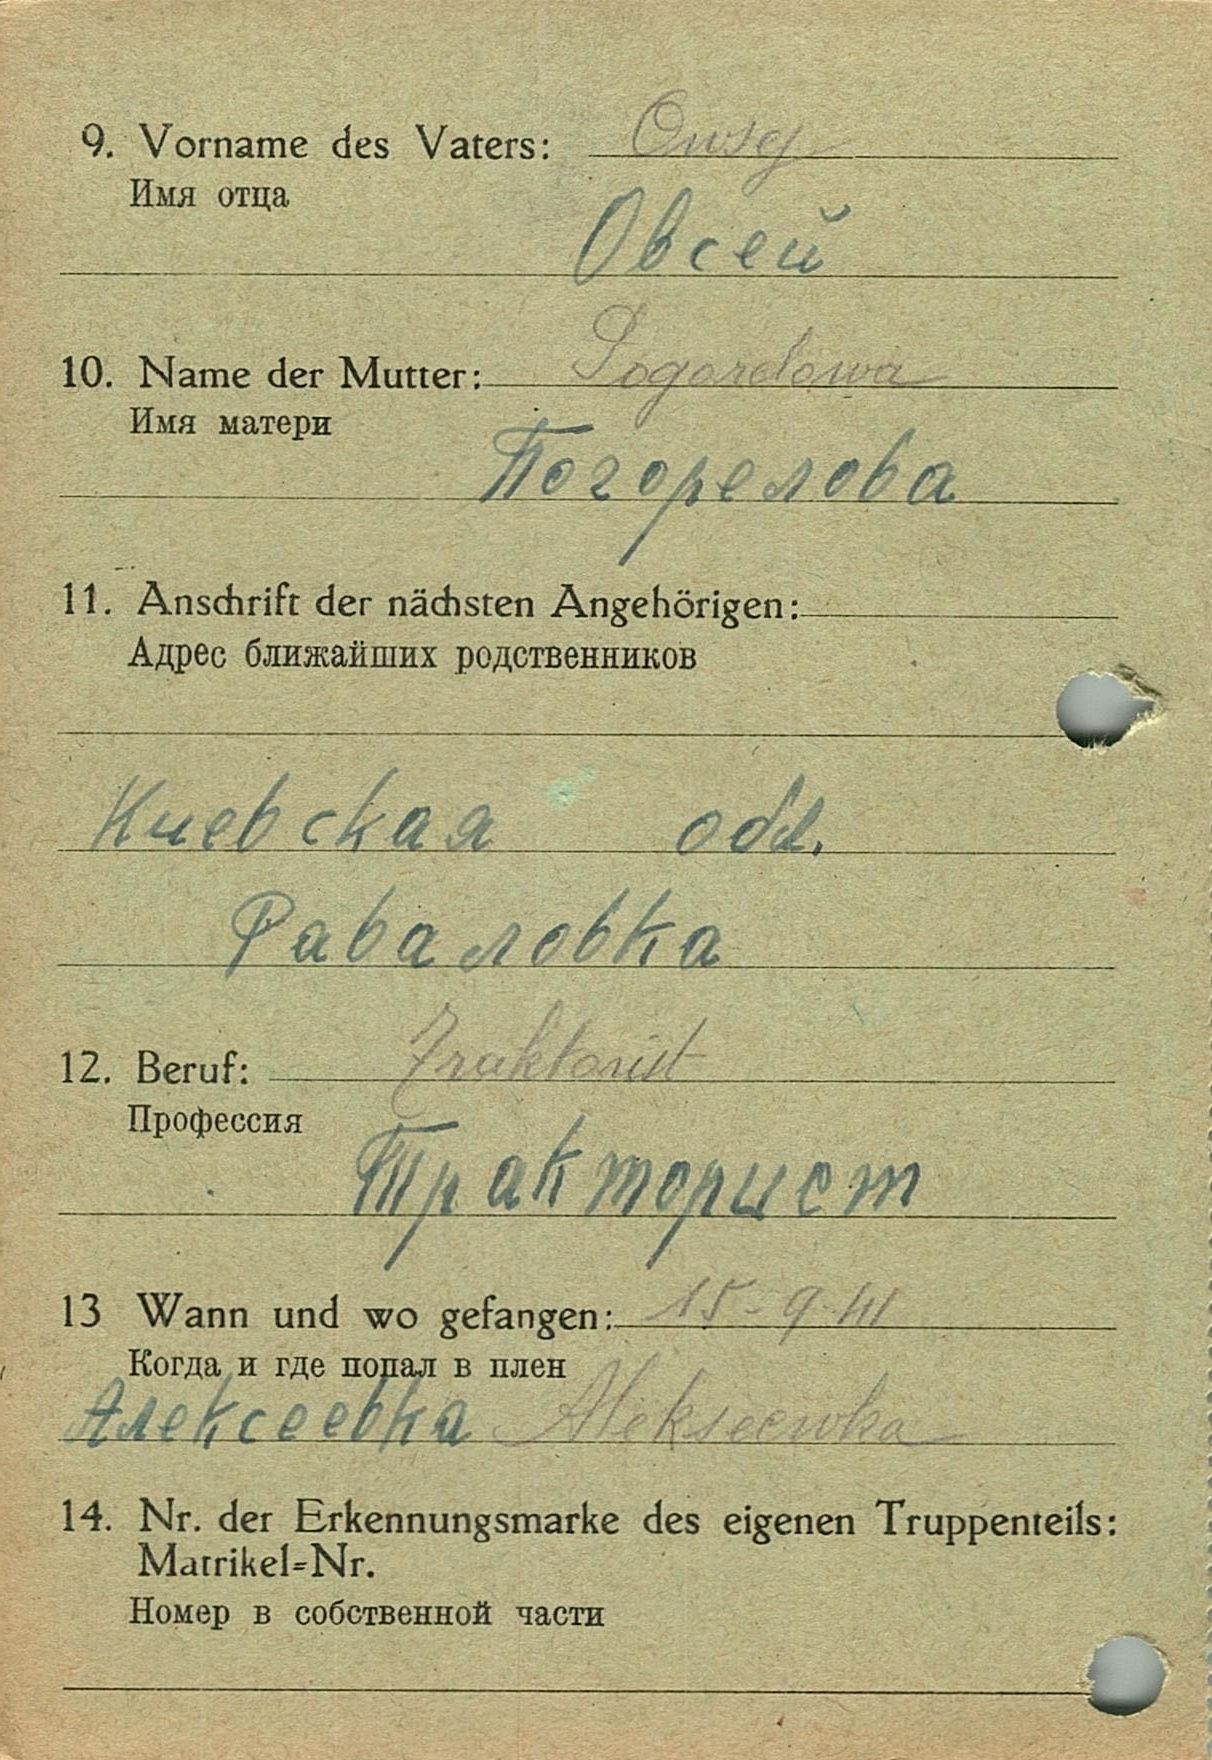 9. Vorname des Vaters: Owsej
Имя отца
Овсей
10. Name der Mutter: Pogorelowa
Имя матери
Погорелова
11. Anschrift der nächsten Angehörigen:
Адрес ближайших родственников
Киевская обл.
Раваловка
12. Beruf: Traktorist
Профессия
Тракторист
13 Wann und wo gefangen: 15-9-41
Когда и где попал в плен
Алексеевка Alekseewka
14. Nr. der Erkennungsmarke des eigenen Truppenteils:
Matrikel=Nr.
Номер в собственной части